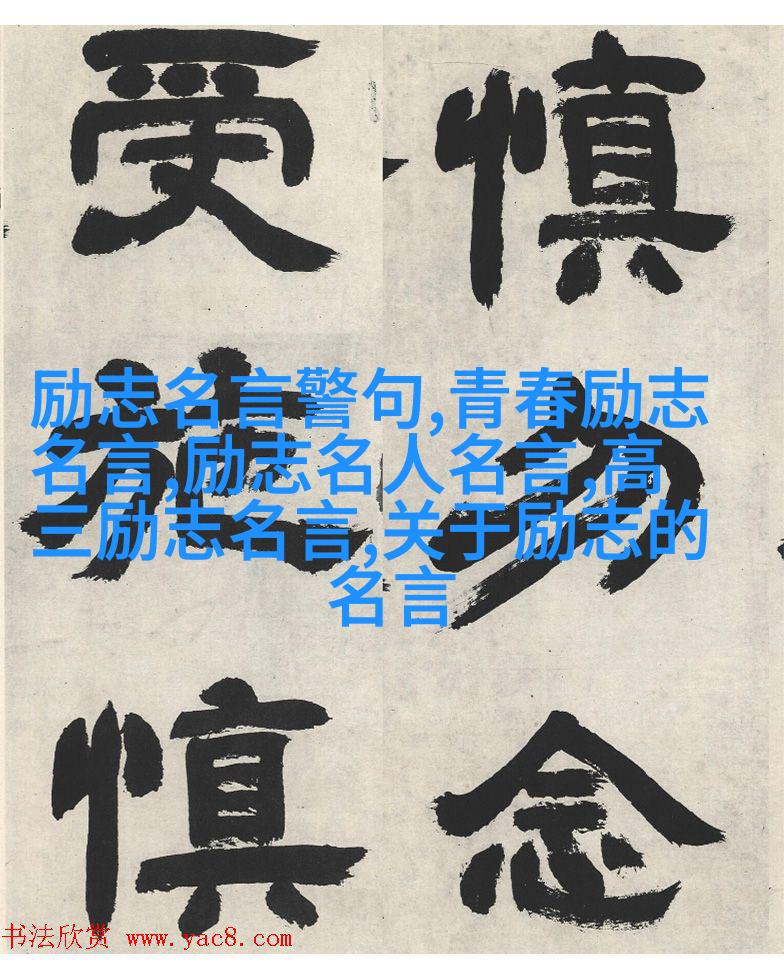 慎勿念
受施慎
励志名言警句,青春励志
名言,励志名人名言,高
三励志名言,关于励志的
名言
书法欣赏 www.yac8.com